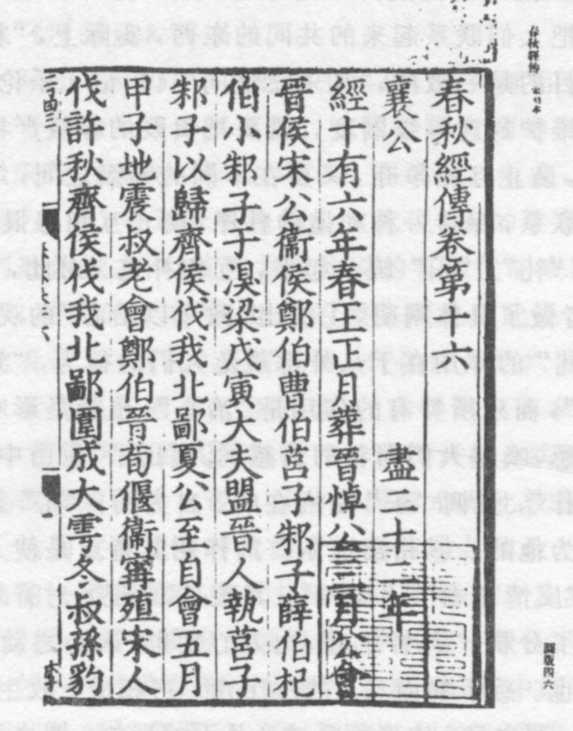 春秋經傳卷第十六
襄公 盡二十二年
經十有六年春王正月葬晉悼公三月公會
晉侯宋公衞侯鄭伯曹伯莒子邾子薛伯杞
伯小邾子于溴梁戊寅大夫盟晉人執莒子
邾子以歸齊侯伐我北鄙夏公至自會五月
甲子地震叔老會鄭伯晉荀偃衞甯殖宋人
伐許秋齊侯伐我北鄙圍成大雩冬叔孫豹
圖版四六